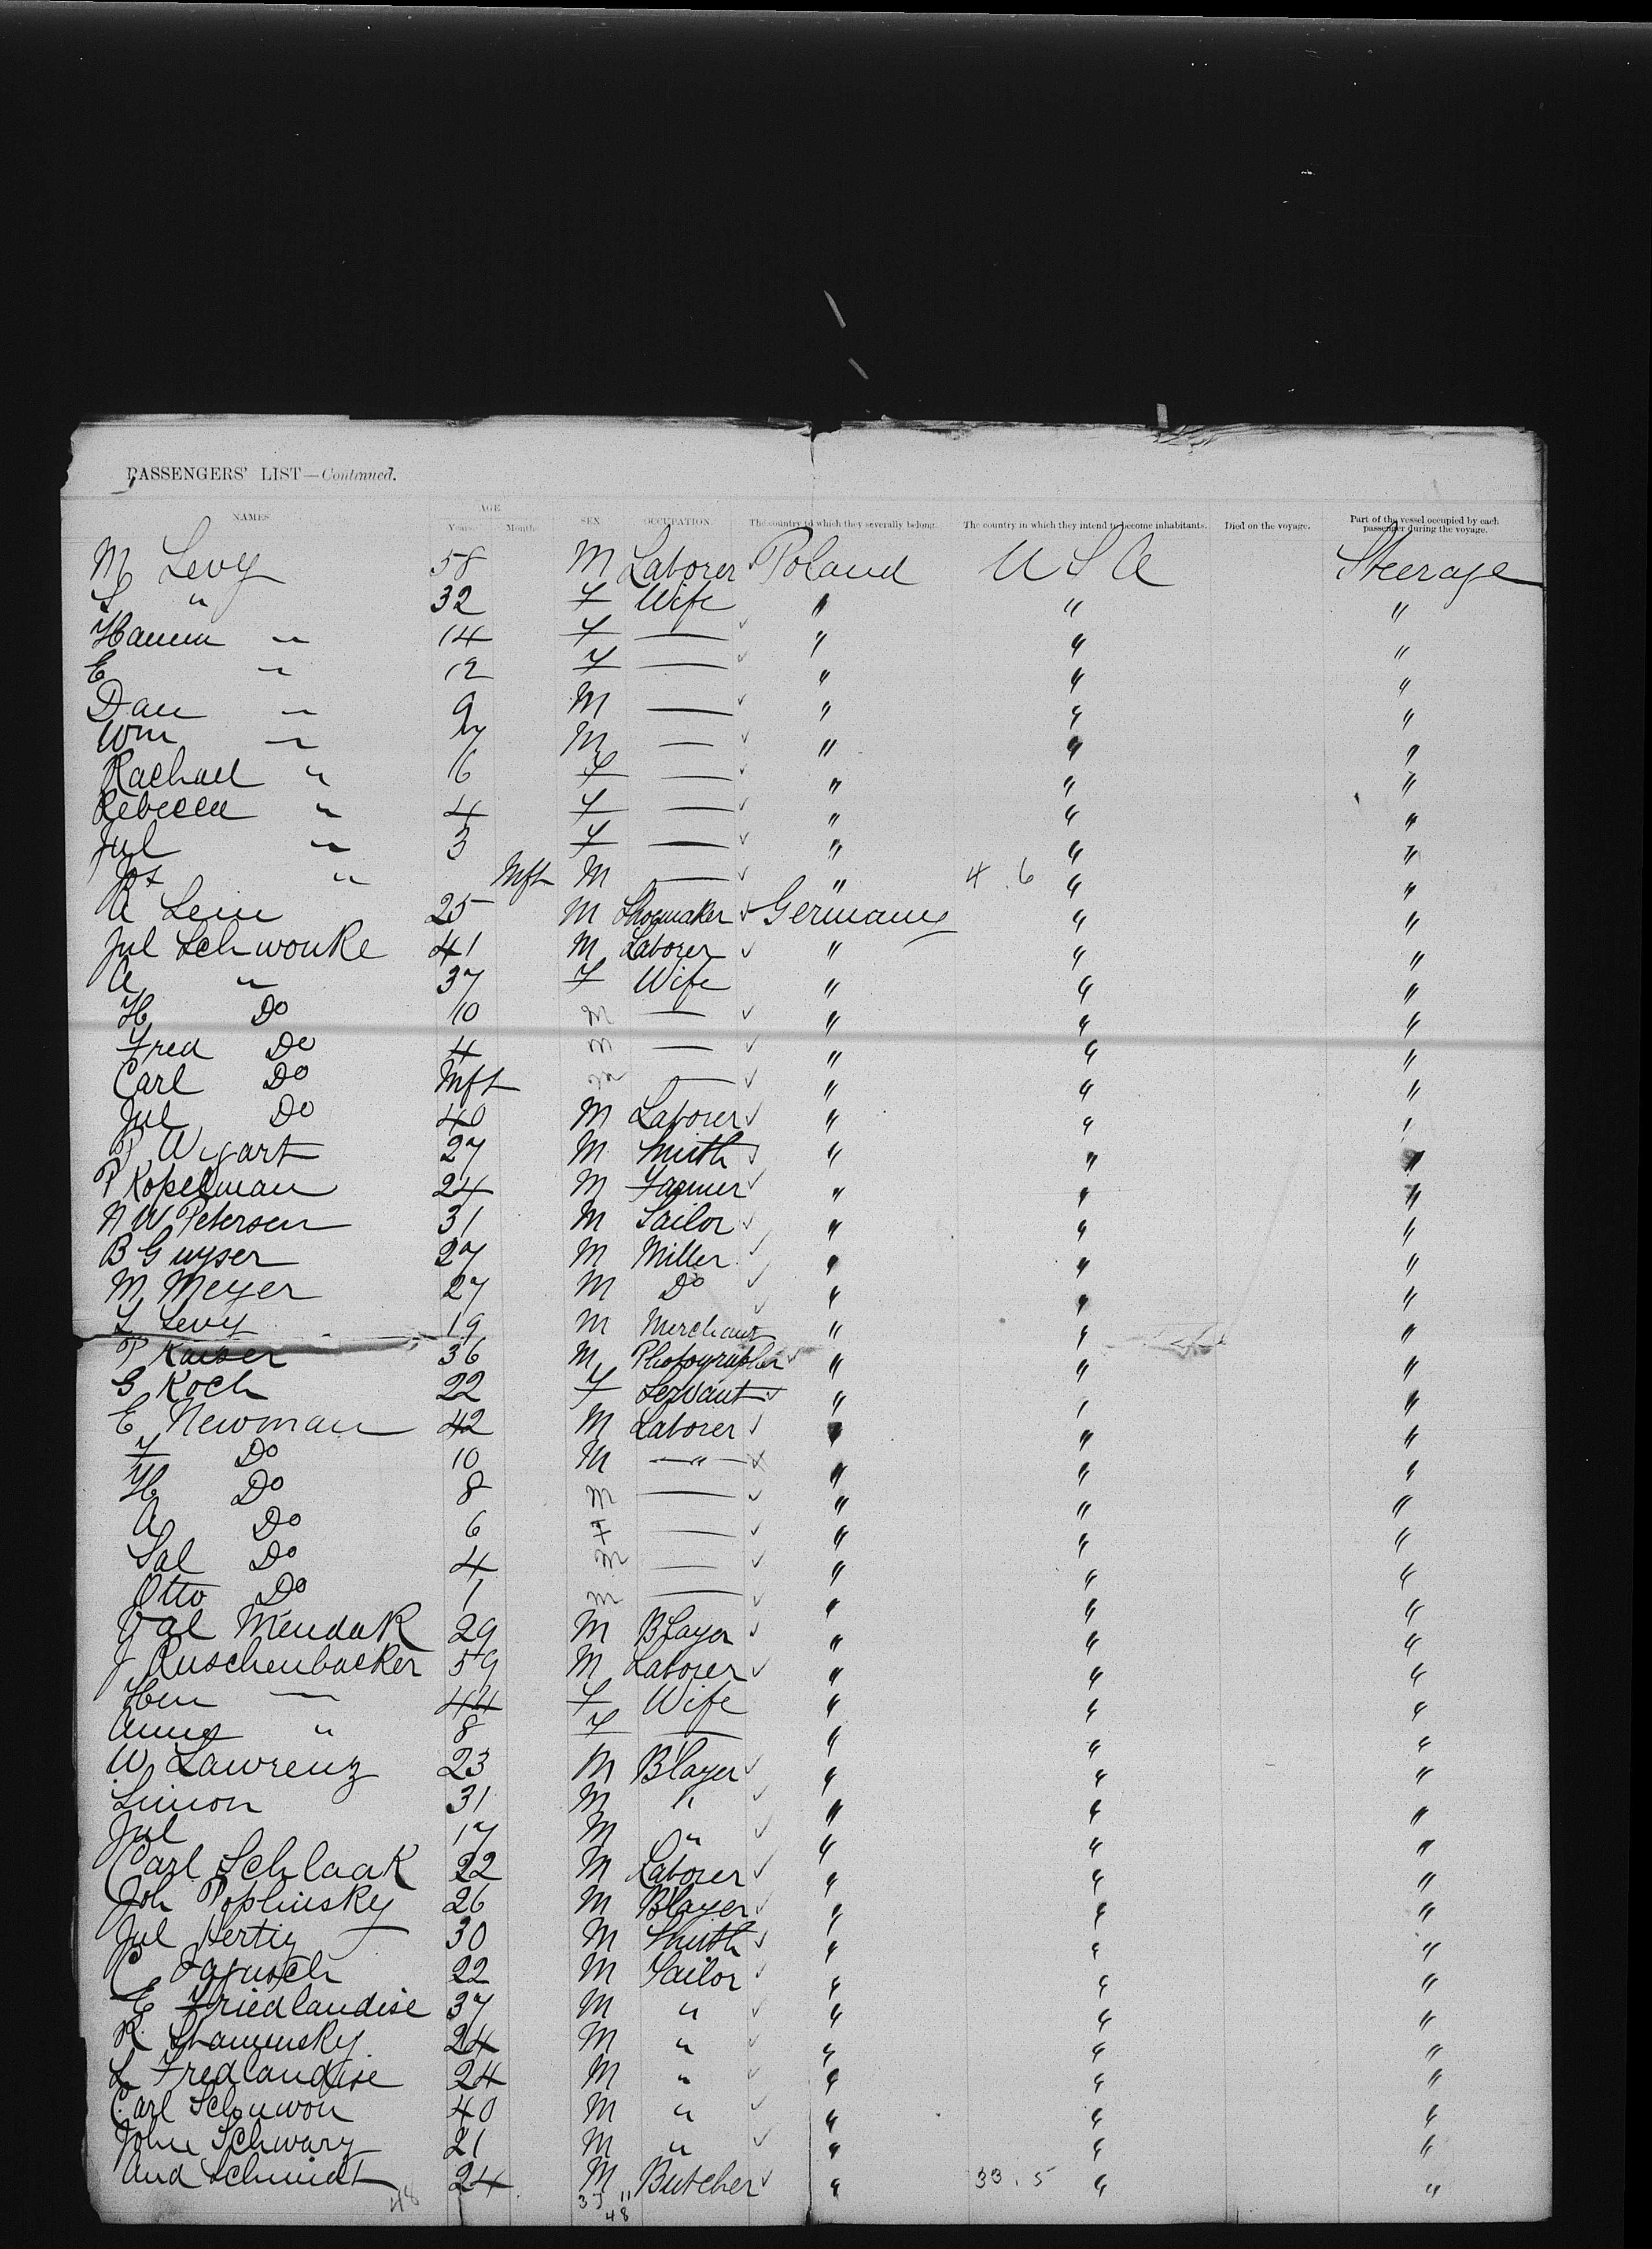 PASSENGERS' LIST—Continued.
NAMES AGE Years Months SEX OCCUPATION. The country to which they severally belong. The country in which they intend to become inhabitants. Died on the voyage. Part of the vessel occupied by each passenger during the voyage.
M Levy 58 M Laborer Poland U S A Steerage
S " 32 F Wife " " "
Hannn " 14 F — " " "
E " 12 F — " " "
Dan " 9 M — " " "
Wm " 7 M — " " "
Rachael " 6 F — " " "
Rebecca " 4 F — " " "
Jul " 3 F — " " "
Jos " Mft M — " 4.6 " "
A Lein 25 M Shoemaker Germany " "
Jul Schwonke 41 M Laborer " " "
A " 37 F Wife " " "
H Do 10 M — " " "
Fred Do 4 M — " " "
Carl Do Mft M — " " "
Jul Do 40 M Laborer " " "
P Wigart 27 M Smith " " "
P Kopelman 24 M Farmer " " "
N W Petersen 31 M Sailor " " "
B Guyser 27 M Miller " " "
M Meyer 27 M Do " " "
L Levy 19 M Merchant " " "
P Kaiser 36 M Photographer " " "
G Koch 22 F Servant " " "
E Newman 42 M Laborer " " "
F Do 10 M —"— " " "
H Do 8 M — " " "
A Do 6 F — " " "
Sal Do 4 M — " " "
Otto Do 1 M — " " "
Val Mendak 29 M BLayer " " "
J Ruschenbacker 59 M Laborer " " "
Hen — 44 F Wife " " "
Anna " 8 F — " " "
W Lawrenz 23 M BLayer " " "
Simon 31 M " " " "
Jul 17 M " " " "
Carl Schlaak 22 M Laborer " " "
Joh Poplinsky 26 M BLayer " " "
Jul Hertig 30 M Smith " " "
C 22 M Tailor " " "
E Friedlandise 37 M " " " "
R Stamnsky 24 M " " " "
L Fredlandise 24 M " " " "
Carl Schuwon 40 M " " " "
John Schwarz 21 M " " " "
And Schmidt 24 M Butcher " 33.5 " "
48 37 11
48